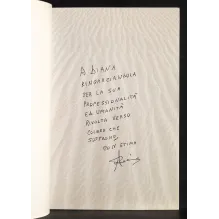 A DIANA
RINGRAZIANDOLA
PER LA SUA
PROFESSIONALITÀ
ED UMANITÀ
RIVOLTA VERSO
COLORO CHE
SOFFRONO
CON STIMA